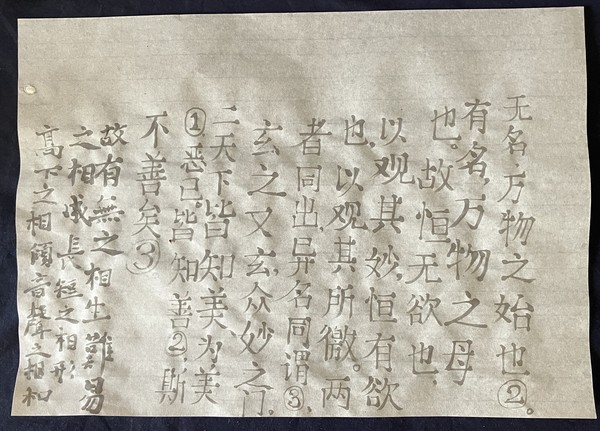 无名,万物之始也②。
有名,万物之母
也。故恒无欲也,
以观其妙,恒有欲
也,以观其所徼。两
者同出,异名同谓③,
玄之又玄,众妙之门。
二天下皆知美、为美
①,恶已。皆知善②,斯
不善矣③
故有無之相生難易
之相成長短之相形
高下之相傾音聲之相和